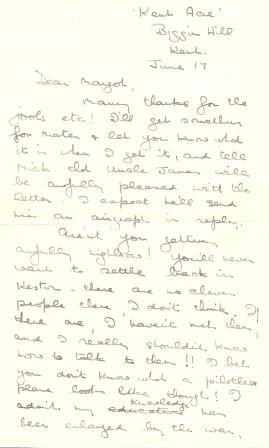 'Kent Acre'
Biggin Hill
Kent.
June 17
Dear Margot,
Many thanks for the
jools etc! I'll get something
for Mater & let you know what
it is when I get it, and tell
Mick old Uncle James will
be awfully pleased with the
letter. I expect he'll send
him an airgraph in reply.
Aren't you getting
awfully highbrow! You'll never
want to settle back in
Keston - there are no clever
people there I don't think. If
there are, I haven't met them,
and I really shouldn't know
how to talk to them!! I bet
you don't know what a pilotless
plane looks like, though! I
admit my knowledge has
been enlarged by the war,